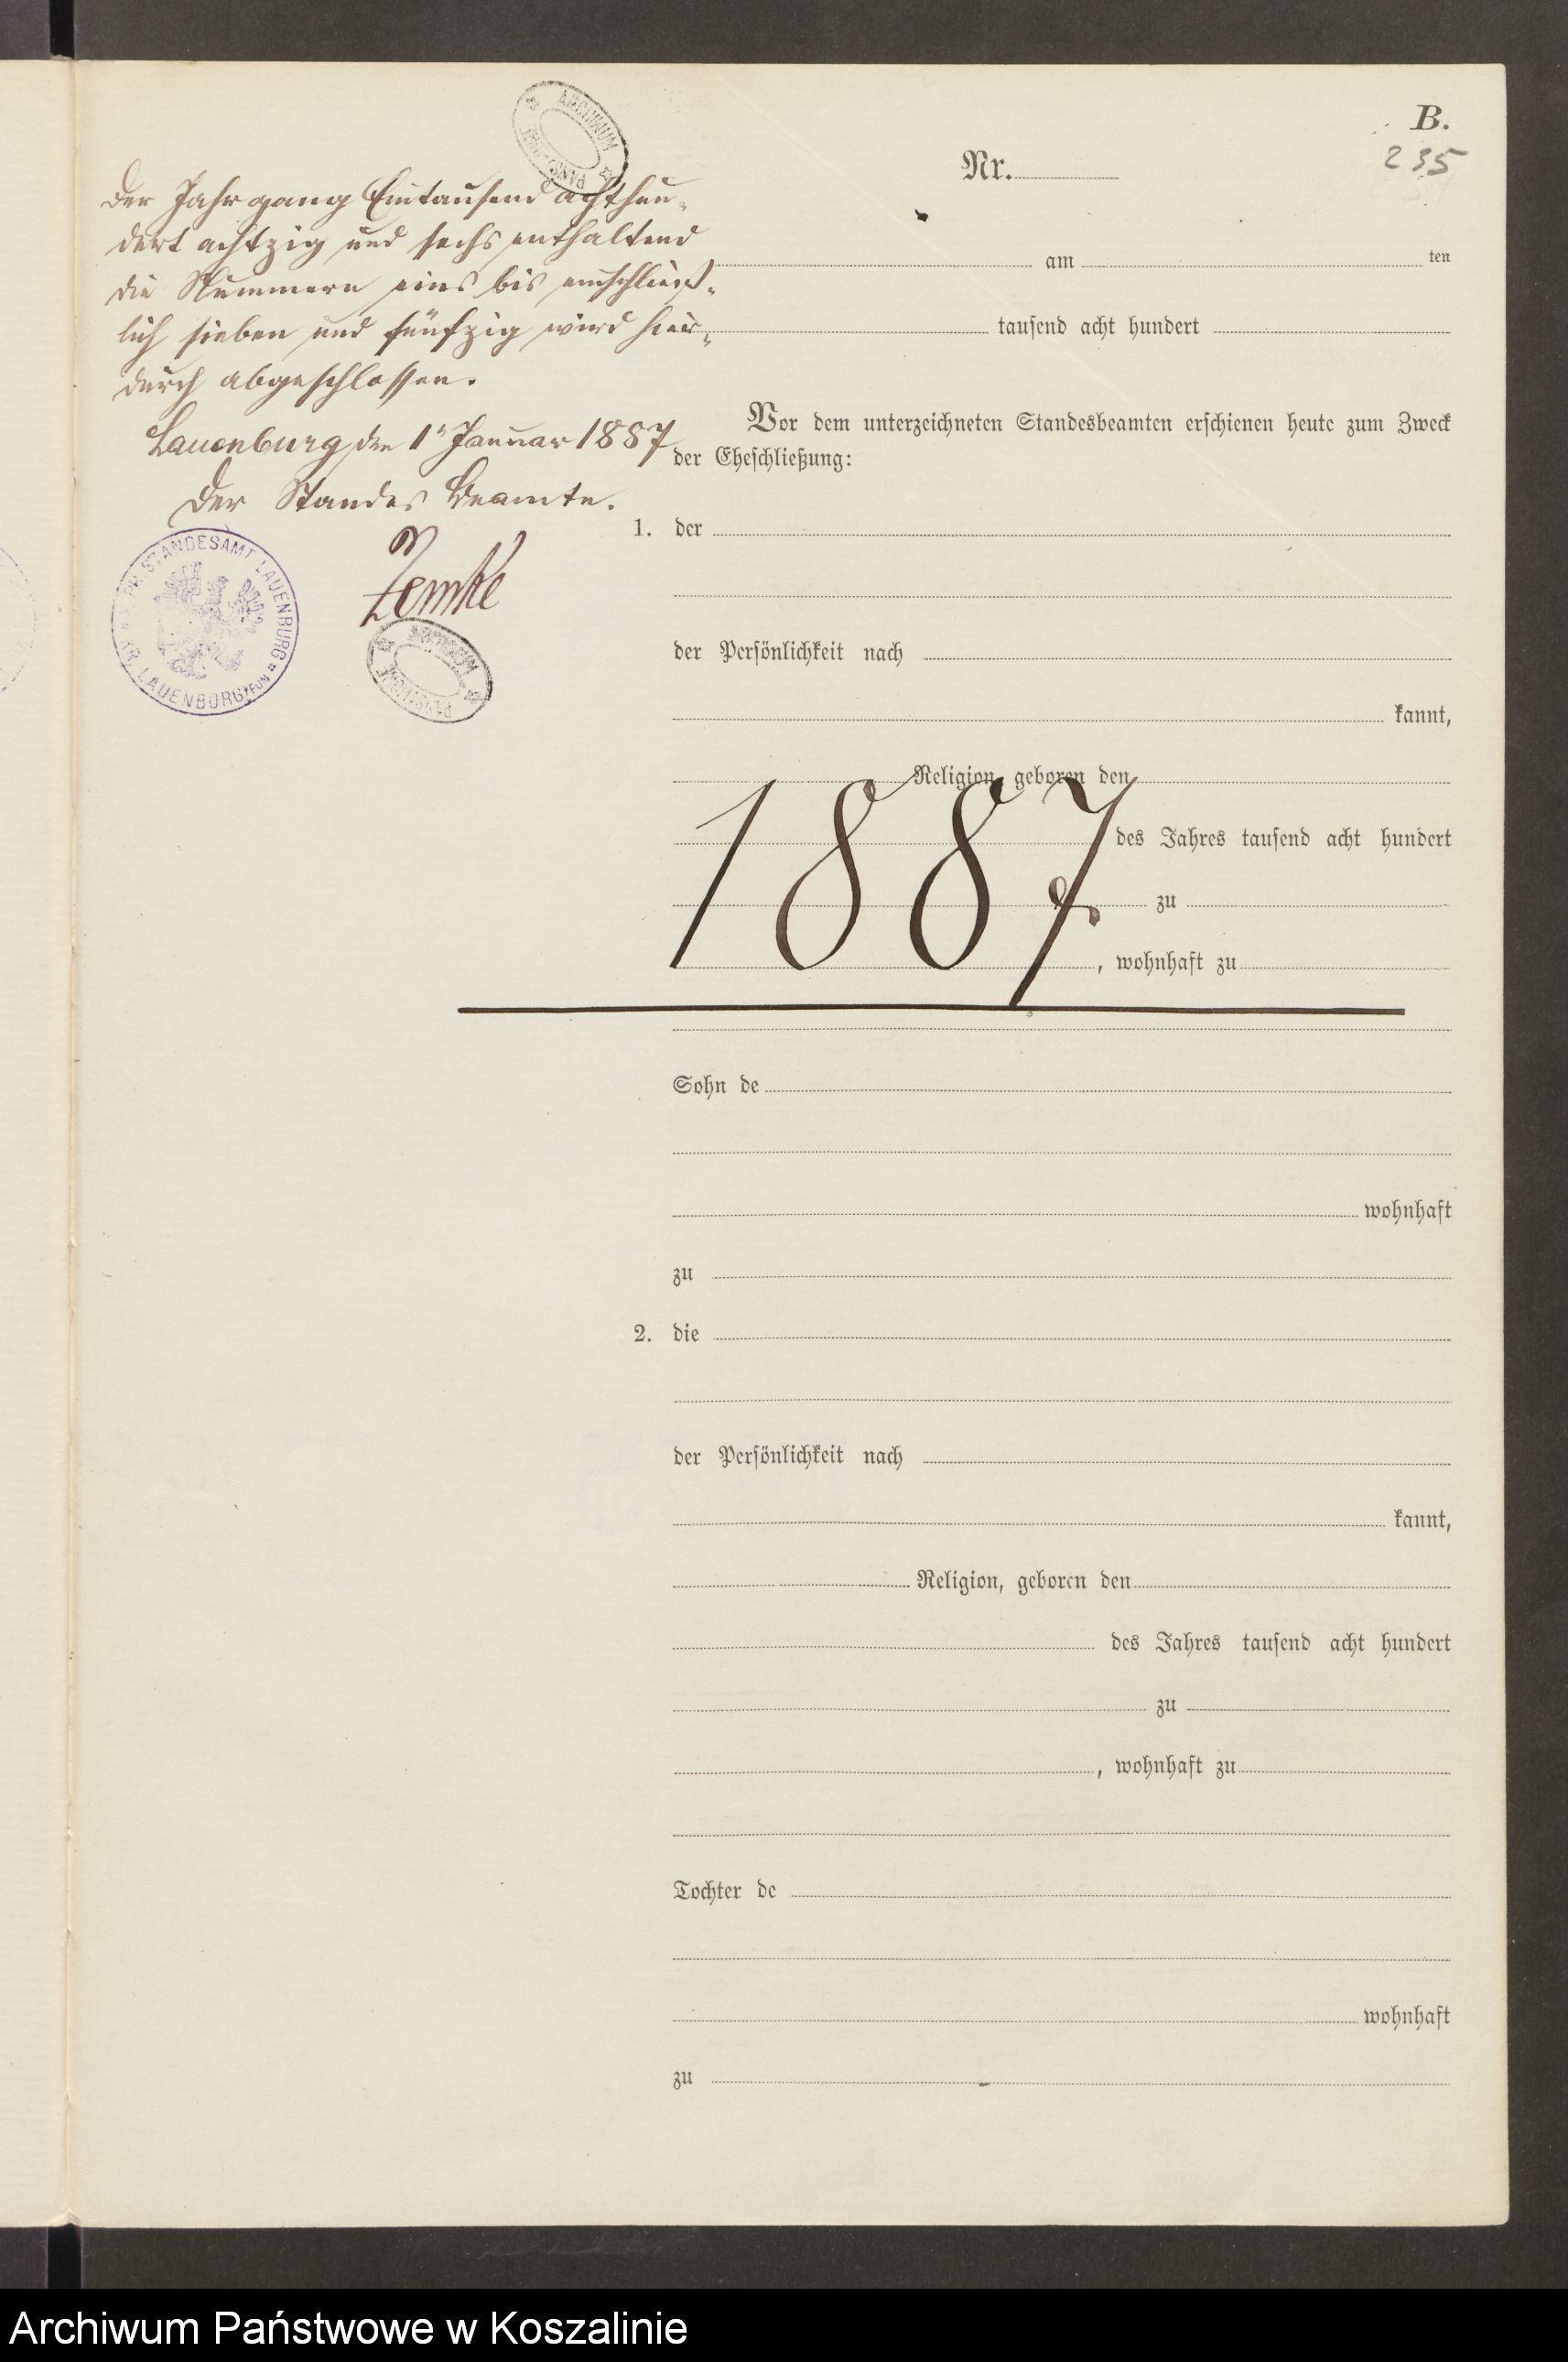 B.
235
Nr.
Der Jahrgang Eintausend achthun-
dert achtzig und sechs enthaltend
die Nummern eins bis einschließ-
lich sieben und fünfzig wird hier-
durch abgeschlossen.
Lauenburg, den 1ᵗ Januar 1887
Der Standes Beamte.
Zemke
PR. STANDESAMT LAUENBURG
KR. LAUENBURG
ARCHIWUM PAŃSTWOWE
ARCHIWUM PAŃSTWOWE
am ten
tausend acht hundert
Vor dem unterzeichneten Standesbeamten erschienen heute zum Zweck
der Eheschließung:
1. der
der Persönlichkeit nach
kannt,
Religion, geboren den
des Jahres tausend acht hundert
zu
, wohnhaft zu
1887
Sohn de
wohnhaft
zu
2. die
der Persönlichkeit nach
kannt,
Religion, geboren den
des Jahres tausend acht hundert
zu
, wohnhaft zu
Tochter de
wohnhaft
zu
Archiwum Państwowe w Koszalinie